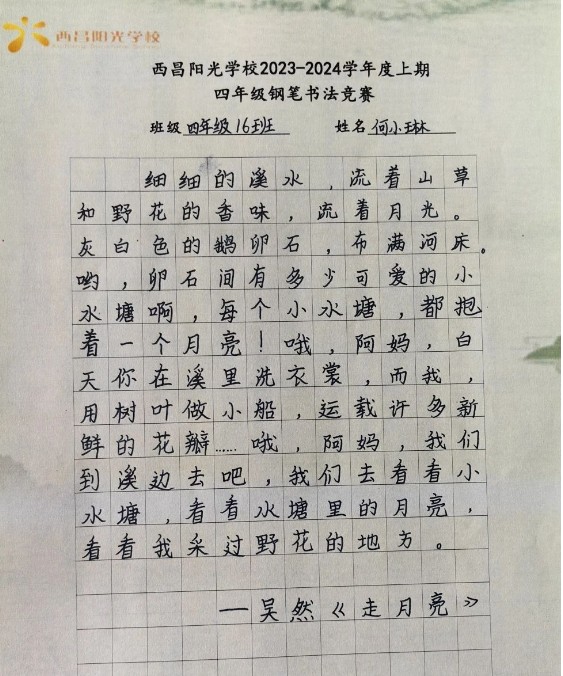 西昌阳光学校
西昌阳光学校2023-2024学年度上期
四年级钢笔书法竞赛
班级 四年级16班 姓名 何小琳
细细的溪水，流着山草
和野花的香味，流着月光。
灰白色的鹅卵石，布满河床。
哟，卵石间有多少可爱的小
水塘啊，每个小水塘，都抱
着一个月亮！哦，阿妈，白
天你在溪里洗衣裳，而我，
用树叶做小船，运载许多新
鲜的花瓣……哦，阿妈，我们
到溪边去吧，我们去看看小
水塘，看看水塘里的月亮，
看看我采过野花的地方。
—吴然《走月亮》